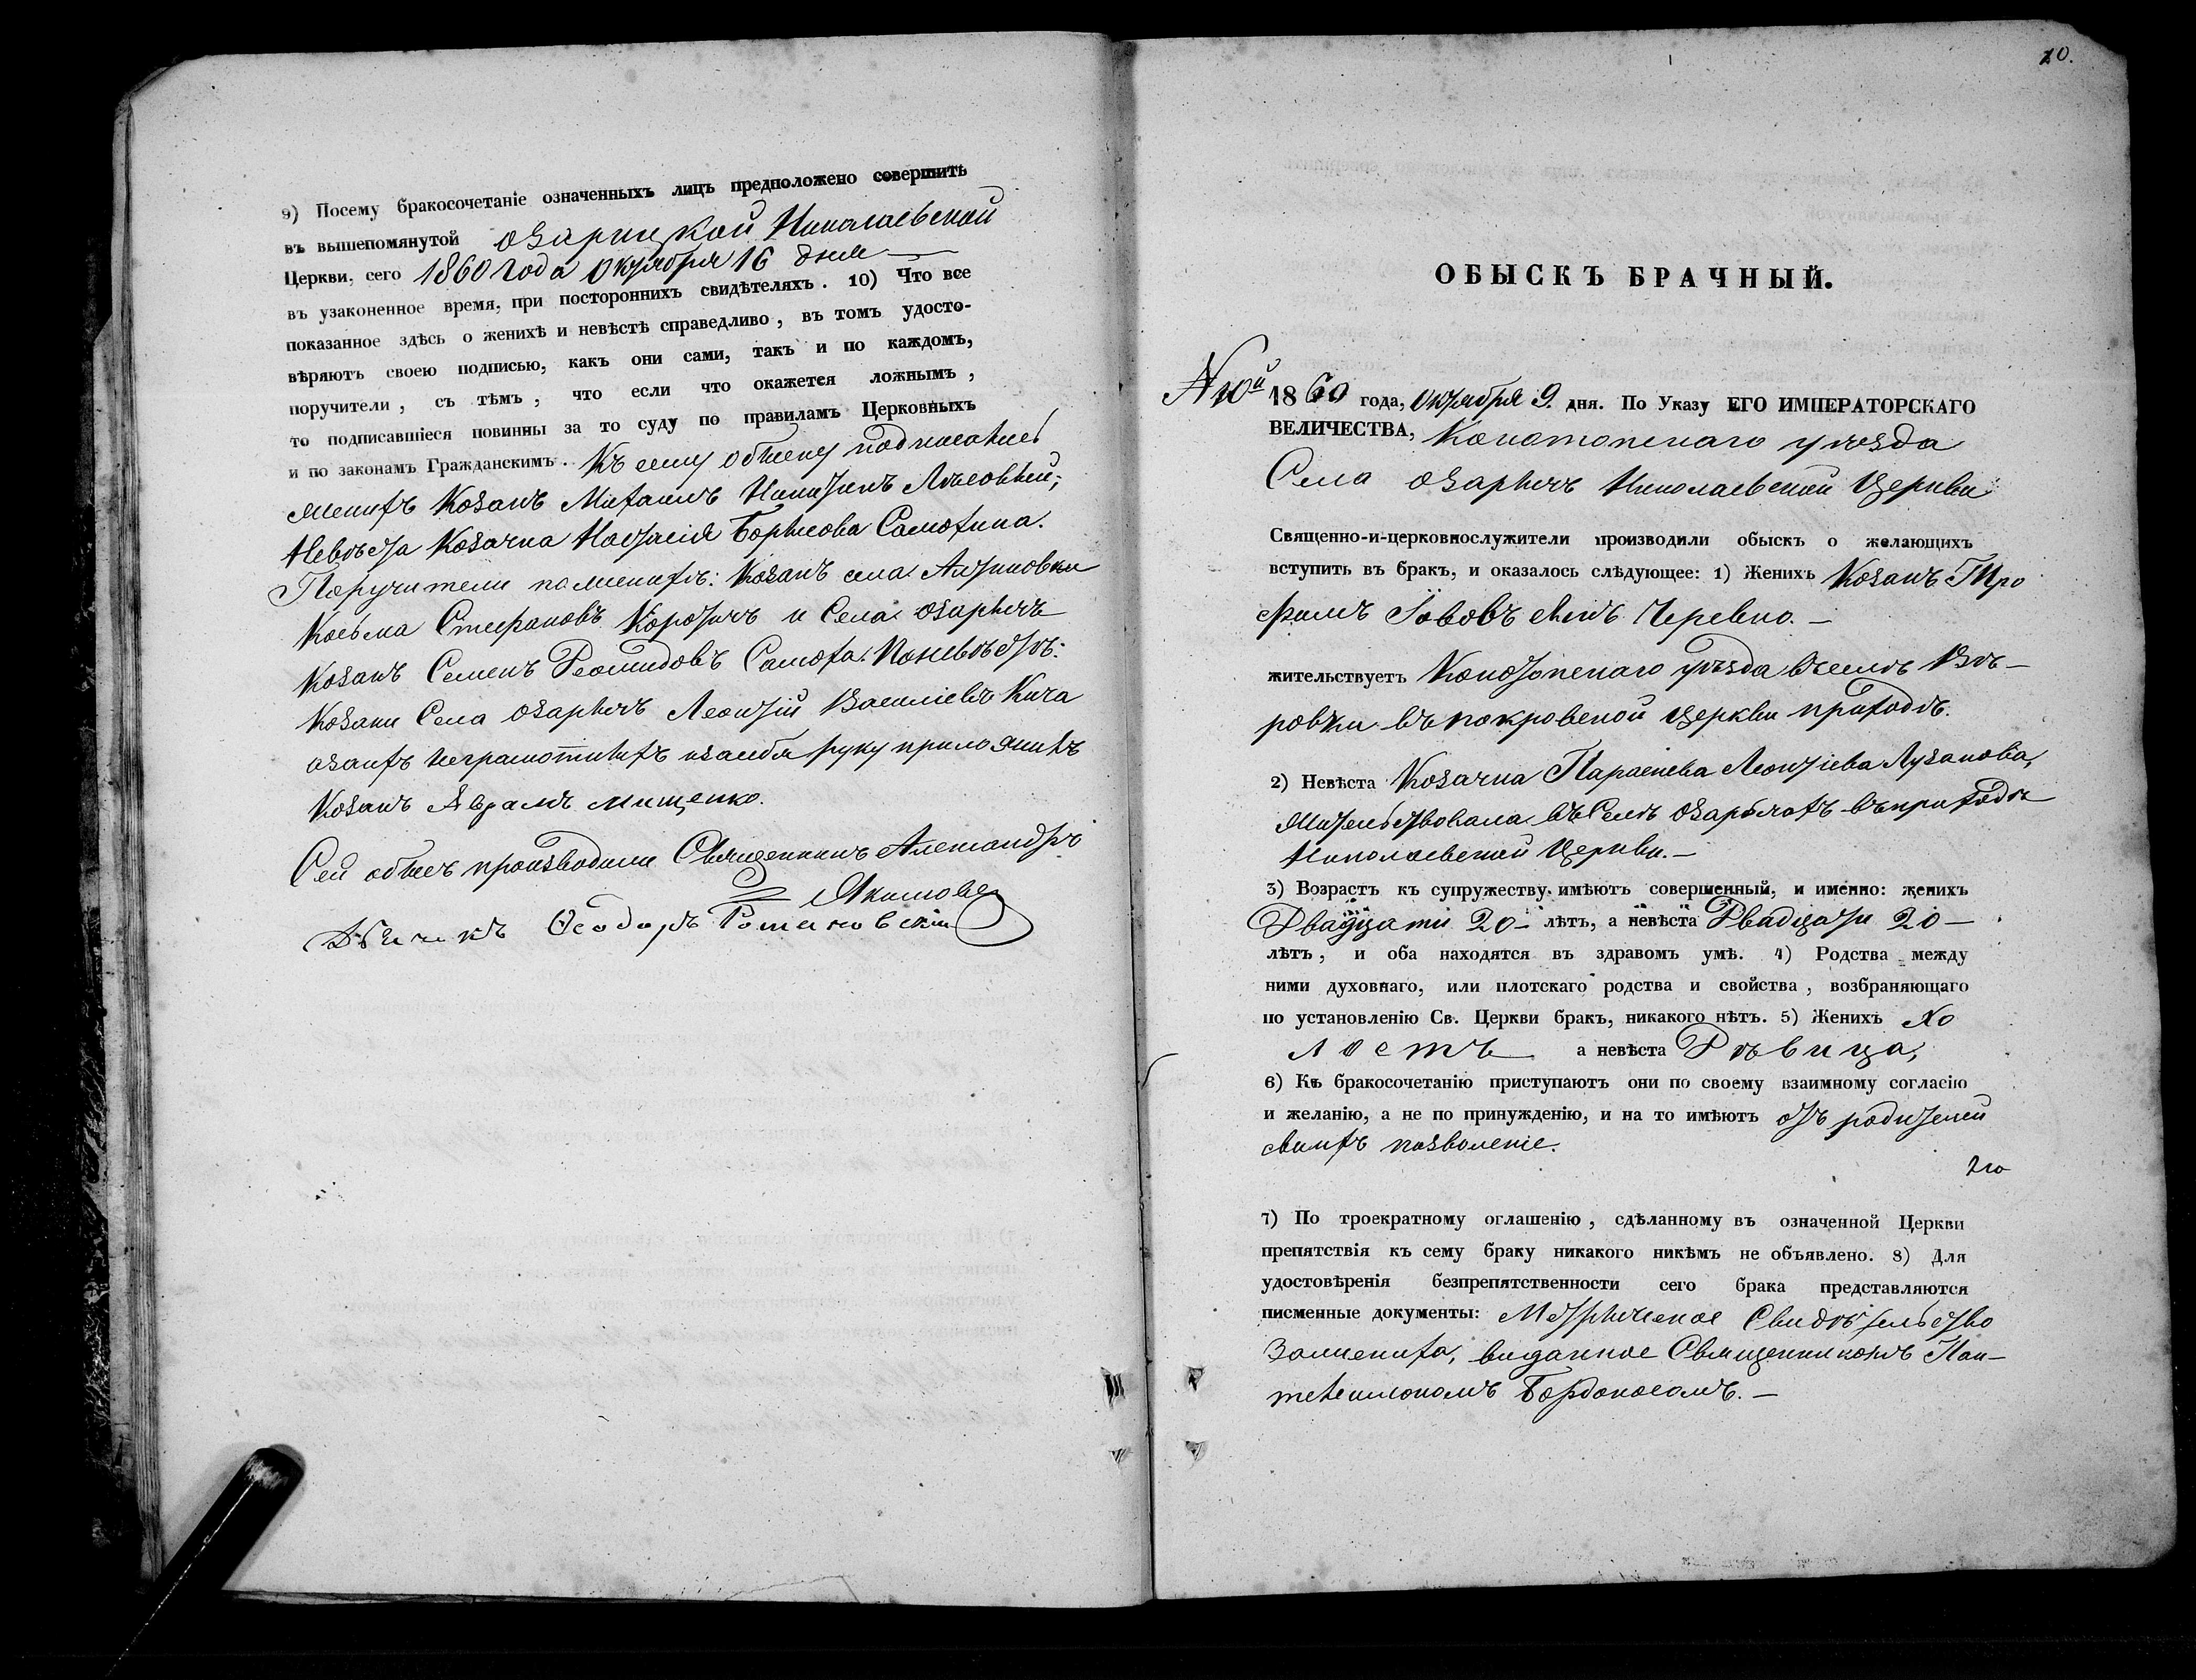 9) Посему бракосочетаніе означенныхъ лицъ предположено совершить
въ вышепомянутой озарицкой Николаевской
Церкви, сего 1860 года Октября 16 дня
въ узаконенное время, при постороннихъ свидѣтеляхъ. 10) Что все
показанное здѣсь о женихѣ и невѣстѣ справедливо, въ томъ удосто-
вѣряютъ своею подписью, какъ они сами, такъ и по каждомъ,
поручители, съ тѣмъ, что если что окажется ложнымъ,
то подписавшіеся повинны за то суду по правиламъ Церковныхъ
и по законамъ Гражданскимъ. Къ сему обыску подписались
женихъ Козакъ Михаилъ Никитинъ
Невѣста Козачка Настасія Борисова Самохина.
Поручители по женихѣ: Козакъ села
Косьма Стефановъ и Села Озаричъ
Козакъ Семенъ Самоха. По невѣстѣ:
Козаки Села Озаричъ Леонтій Василіевъ Кича
азанхъ неграмотныхъ изасебя руку приложилъ
Козакъ Аврамъ Мищенко.
Сей обыскъ производили Священникъ Александръ
Якимовъ
Дьячекъ Ѳеодоръ Романовскій
10.
ОБЫСКЪ БРАЧНЫЙ.
N 10й 1860 года, Октября 9. дня. По Указу ЕГО ИМПЕРАТОРСКАГО
ВЕЛИЧЕСТВА, Конотопскаго уѣзда
Села Озаричъ Николаевской Церкви
Священно-и-церковнослужители производили обыскъ о желающихъ
вступить въ бракъ, и оказалось слѣдующее: 1) Женихъ Козакъ Тро
фимъ Іововъ сынъ Черевко. —
жительствуетъ Конотопскаго уѣзда въселѣ Вѣ-
ровки въ покровской церкви приходѣ.
2) Невѣста Козачка Параскева Леонтіева Лузанова,
Жительствовала въ Селѣ Озарычахъ въ приходѣ
Николаевской Церкви. —
3) Возрастъ къ супружеству имѣютъ совершенный, и именно: женихъ
Двадцати 20 - лѣтъ, а невѣста Двадцати 20 —
лѣтъ, и оба находятся въ здравомъ умѣ. 4) Родства между
ними духовнаго, или плотскаго родства и свойства, возбраняющаго
по установленію Св. Церкви бракъ, никакого нѣтъ. 5) Женихъ Хо
лостъ а невѣста Дѣвица,
6) Къ бракосочетанію приступаютъ они по своему взаимному согласію
и желанію, а не по принужденію, и на то имѣютъ отъ родителей
своихъ позволеніе.
7) По троекратному оглашенію, сдѣланному въ означенной Церкви
препятствія къ сему браку никакого никѣмъ не объявлено. 8) Для
удостовѣренія безпрепятственности сего брака представляются
писменные документы: Метрическое Свидѣтельство
Зажениха, виданное Священникомъ Пан-
телеимономъ Бордоносомъ. —